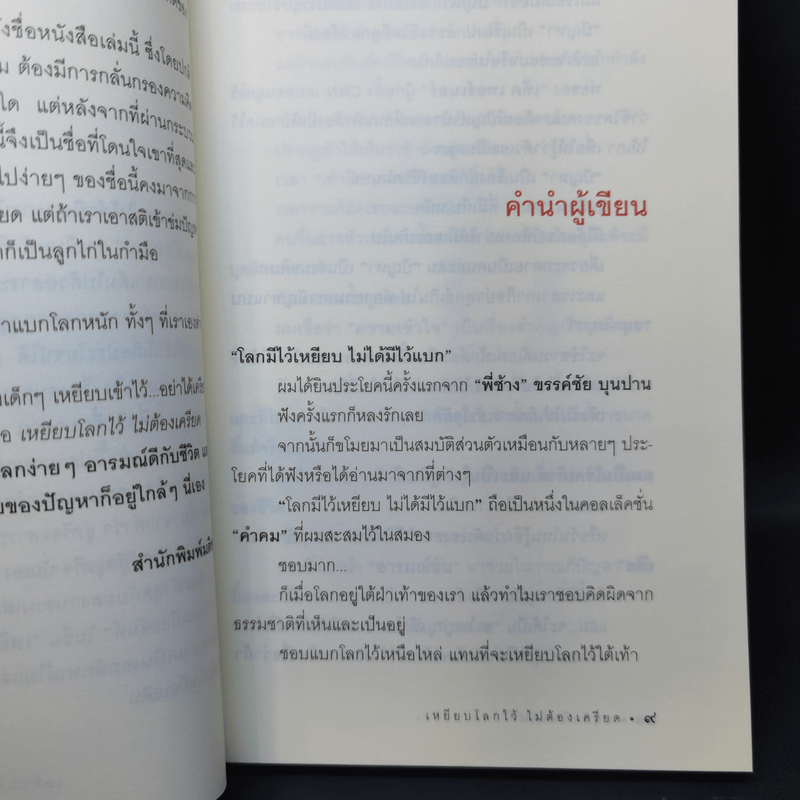 ังชื่อหนังสือเล่มนี้ ซึ่งโดยปกติ
ม ต้องมีการกลั่นกรองความคิด
ใด แต่หลังจากที่ผ่านกระบวน
นี้จึงเป็นชื่อที่โดนใจเขาที่สุด
ไปง่ายๆ ของชื่อนี้คงมาจาก
ียด แต่ถ้าเราเอาสติเข้าข่มปัญหา
าก็เป็นลูกไก่ในกำมือ
าแบกโลกหนัก ทั้งๆ ที่เราเอง
เด็กๆ เหยียบเข้าไว้...อย่าได้
อ เหยียบโลกไว้ ไม่ต้องเครียด
ลกง่ายๆ อารมณ์ดีกับชีวิต
บของปัญหาก็อยู่ใกล้ๆ นี่เอง
สำนักพิมพ์มติ
คำนำผู้เขียน
“โลกมีไว้เหยียบ ไม่ได้มีไว้แบก”
ผมได้ยินประโยคนี้ครั้งแรกจาก “พี่ช้าง” ขรรค์ชัย บุนปาน
ฟังครั้งแรกก็หลงรักเลย
จากนั้นก็ขโมยมาเป็นสมบัติส่วนตัวเหมือนกับหลายๆ ประ-
โยคที่ได้ฟังหรือได้อ่านมาจากที่ต่างๆ
“โลกมีไว้เหยียบ ไม่ได้มีไว้แบก” ถือเป็นหนึ่งในคอลเล็คชั่น
“คำคม” ที่ผมสะสมไว้ในสมอง
ชอบมาก...
ก็เมื่อโลกอยู่ใต้ฝ่าเท้าของเรา แล้วทำไมเราชอบคิดผิดจาก
ธรรมชาติที่เห็นและเป็นอยู่
ชอบแบกโลกไว้เหนือไหล่ แทนที่จะเหยียบโลกไว้ใต้เท้า
เหยียบโลกไว้ ไม่ต้องเครียด • ๙